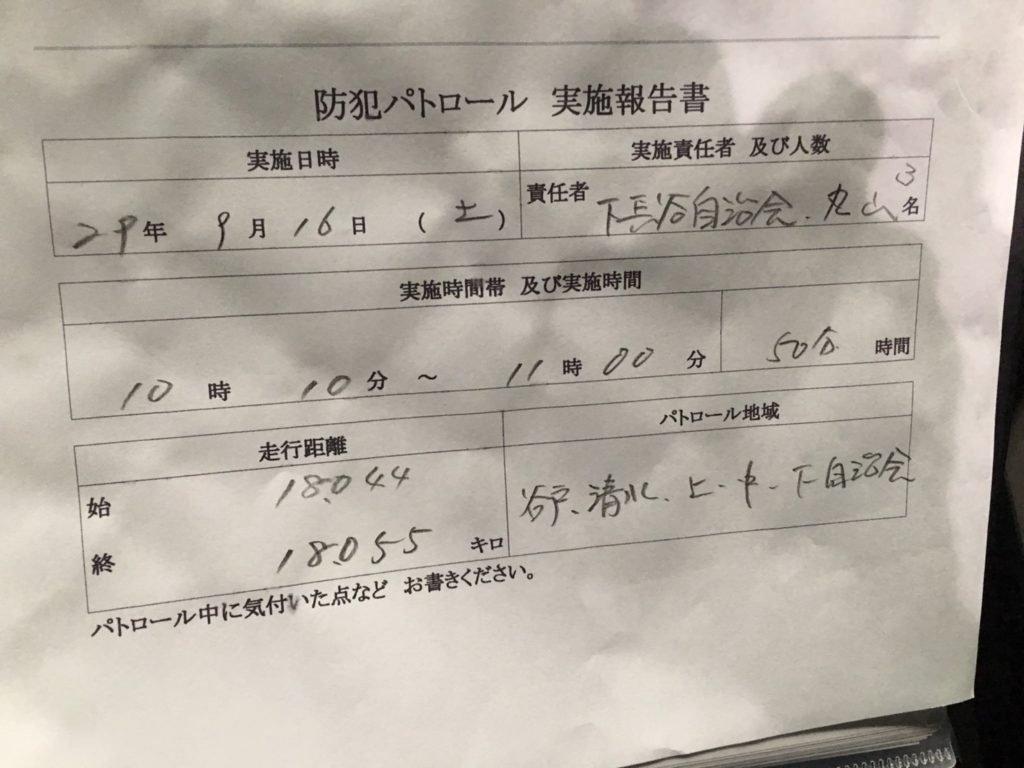 防犯パトロール 実施報告書
実施日時
実施責任者 及び人数
29年 9月 16日 (土)
責任者 下長谷自治会、丸山 3名
実施時間帯 及び実施時間
10時 10分 ~ 11時 00分
50分 時間
走行距離
パトロール地域
始 18.044
終 18.055 キロ
谷戸、清水、上、中、下自治会
パトロール中に気付いた点など お書きください。